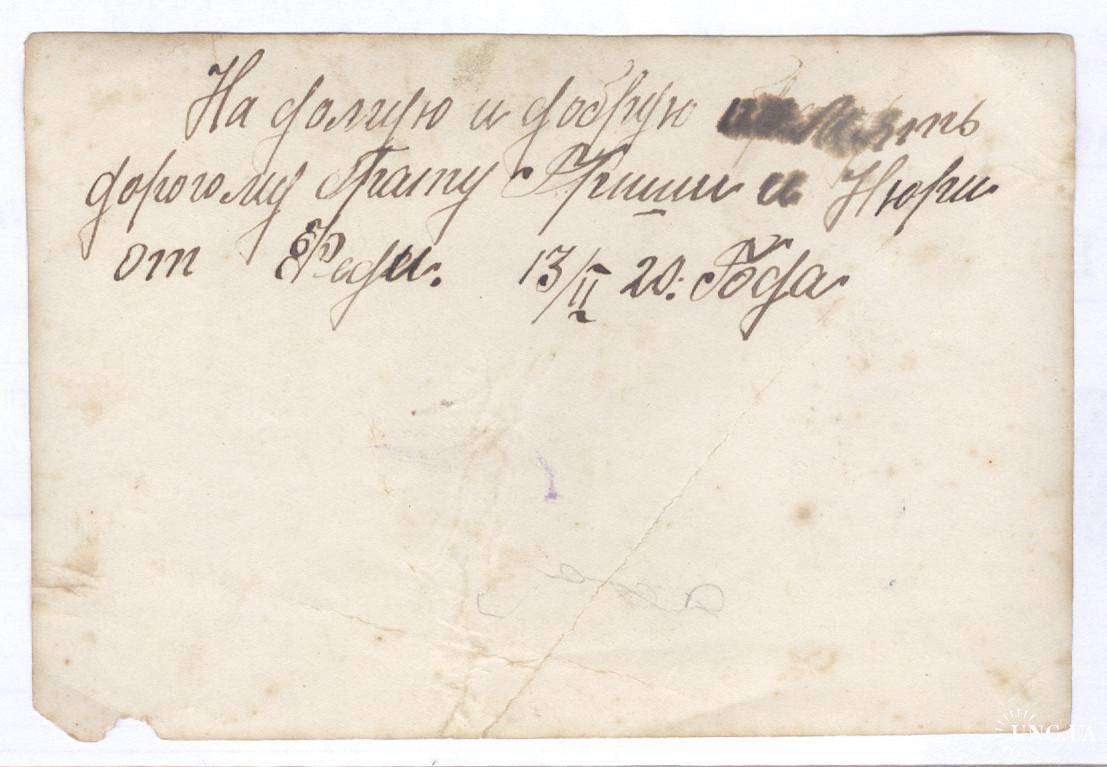 На долгую и добрую память
дорогому Брату Гриши и Нюри
от Феди. 13/II 20. Года
UNC.UA